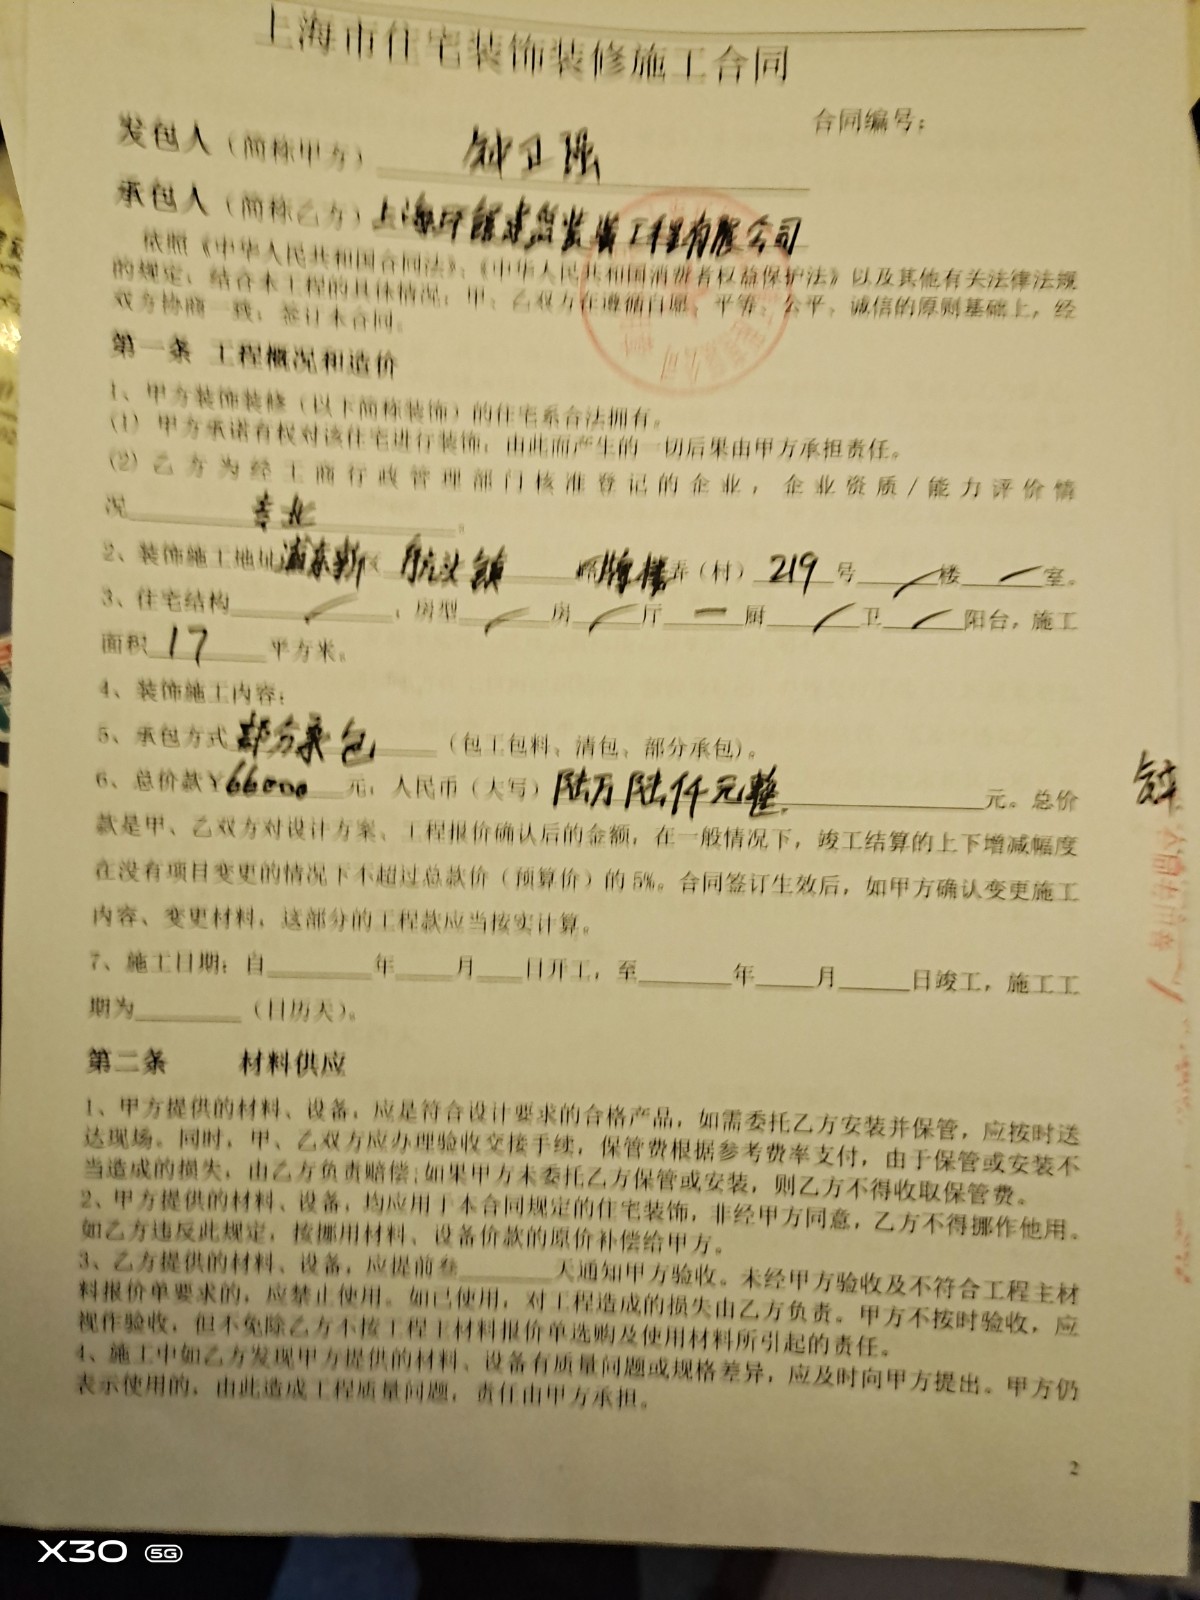 上海市住宅装饰装修施工合同
合同编号：
发包人（简称甲方） 钟卫强
承包人（简称乙方） 上海 建筑装潢工程有限公司
依照《中华人民共和国合同法》，《中华人民共和国消费者权益保护法》以及其他有关法律法规
的规定，结合本工程的具体情况，甲、乙双方在遵循自愿、平等、公平、诚信的原则基础上，经
双方协商一致，签订本合同。
第一条 工程概况和造价
1、甲方装饰装修（以下简称装饰）的住宅系合法拥有。
(1) 甲方承诺有权对该住宅进行装饰，由此而产生的一切后果由甲方承担责任。
(2) 乙方为经工商行政管理部门核准登记的企业，企业资质/能力评价情
况 专业 。
2、装饰施工地址 浦东新区 航头镇 路 牌楼 弄（村） 219 号 / 楼 / 室。
3、住宅结构 / ，房型 / 房 / 厅 一 厨 / 卫 / 阳台，施工
面积 17 平方米。
4、装饰施工内容：
5、承包方式 部分承包 （包工包料、清包、部分承包）。
6、总价款￥66000 元，人民币（大写） 陆万陆仟元整 元。总价
款是甲、乙双方对设计方案、工程报价确认后的金额，在一般情况下，竣工结算的上下增减幅度
在没有项目变更的情况下不超过总款价（预算价）的5%。合同签订生效后，如甲方确认变更施工
内容、变更材料，这部分的工程款应当按实计算。
7、施工日期：自 年 月 日开工，至 年 月 日竣工，施工工
期为 （日历天）。
第二条 材料供应
1、甲方提供的材料、设备，应是符合设计要求的合格产品，如需委托乙方安装并保管，应按时送
达现场。同时，甲、乙双方应办理验收交接手续，保管费根据参考费率支付，由于保管或安装不
当造成的损失，由乙方负责赔偿;如果甲方未委托乙方保管或安装，则乙方不得收取保管费。
2、甲方提供的材料、设备，均应用于本合同规定的住宅装饰，非经甲方同意，乙方不得挪作他用。
如乙方违反此规定，按挪用材料、设备价款的原价补偿给甲方。
3、乙方提供的材料、设备，应提前叁 天通知甲方验收。未经甲方验收及不符合工程主材
料报价单要求的，应禁止使用。如已使用，对工程造成的损失由乙方负责。甲方不按时验收，应
视作验收，但不免除乙方不按工程主材料报价单选购及使用材料所引起的责任。
4、施工中如乙方发现甲方提供的材料、设备有质量问题或规格差异，应及时向甲方提出。甲方仍
表示使用的，由此造成工程质量问题，责任由甲方承担。
2
X30 5G